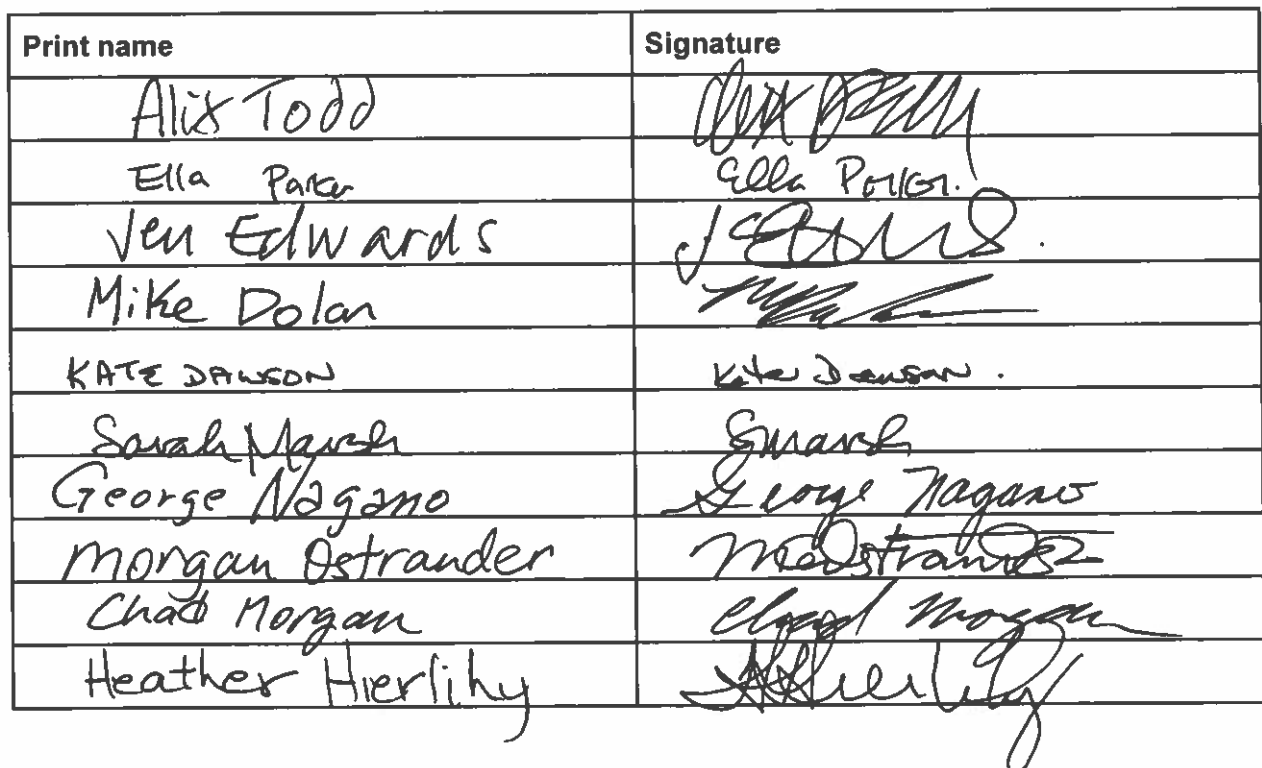 Print name Signature
Alix Todd Alix
Ella Parker Ella Parker.
Jen Edwards
Mike Dolan
KATE DAWSON Kate Dawson.
Sarah Marsh SMarsh
George Nagano George Nagano
Morgan Ostrander MeOstrander
Chad Morgan Chad Morgan
Heather Hierlihy HHierlihy